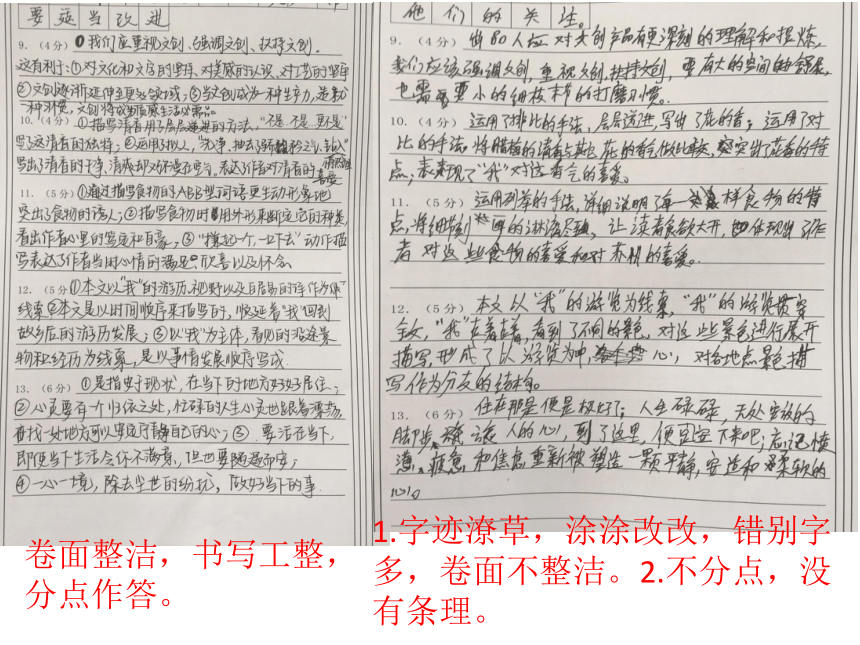 要适当改进
9.（4分）①我们应重视文创、强调文创、扶持文创.
这有利于:①对文化和文字的坚持、对美感的认识、对工艺的坚守
②文创逐渐延伸至更多领域;③当文创成为一种生产力,
一种习惯,文创将成为美感生活必需品。
10.（4分）①描写清香用了层层递进的方法,"不是 不是 更是"
写了这清香的独特;②运用了拟人,
写出了清香的干净,清咸却又不寡
喜爱
11.（5分）①通过描写食物的ABB型词语更生动形象地
突出了食物的诱人;②描写食物时用外形来断定它的种类,
看出作者心里的笃定和自豪;③"撑起一个,一口下去"动作描
写表达了作者当时心情的满足、欣喜以及怀念
12.（5分）①本文以"我"的游历、视野以及白居易的诗作为
线索②本文是以时间顺序来描写的,顺延着"我"回到
故乡后的游历发展;③以"我"为主体,看见的沿途景
物和经历为线索,是以事情发展顺序写成
13.（6分）①是指安于现状,在当下的地方好好居住;
②心灵要有一个归依之处,忙碌的人生心灵也跟着漂荡,
再找一处地方可以安定宁静自己的心;③.要活在当下,
即使当下生活令你不满意,但也要随遇而安;
④一心一境,除去尘世的纷扰,做好当下的事.
他们的关注。
9.（4分）做80人应对文创产品有更深刻的理解和提炼,
我们应该强调文创,重视文创,扶持文创,要有大的空间的舒展,
也需要小的细枝末节的打磨习惯。
10.（4分）运用了排比的手法,层层送进,写出了花的香;运用了对
比的手法,将腊梅的清香与其它花的香气做比较,突出了花香的特
点;表现了"我"对这香气的喜爱。
11.（5分）运用列举的手法,详细说明了每一样食物的特
点,将细节刻画的淋漓尽致,让读者食欲大开,也体现出了作
者对这些食物的喜爱和对苏州的喜爱。
12.（5分）本文以"我"的游览为线索,"我"的游览贯穿
全文,"我"走着走着,看到了不同的景色,对这些景色进行展开
描写,形成了以游览为中心,对各地点景色描
写作为分支的结构。
13.（6分）住在那是便是极好了;人生碌碌,无处安放的
脚步,流浪人的心,到了这里,便固定下来吧;应记愤
懑、疲惫和焦虑重新被塑造一颗平静,安适和柔软的
心。
卷面整洁，书写工整，
分点作答。
1.字迹潦草，涂涂改改，错别字
多，卷面不整洁。2.不分点，没
有条理。